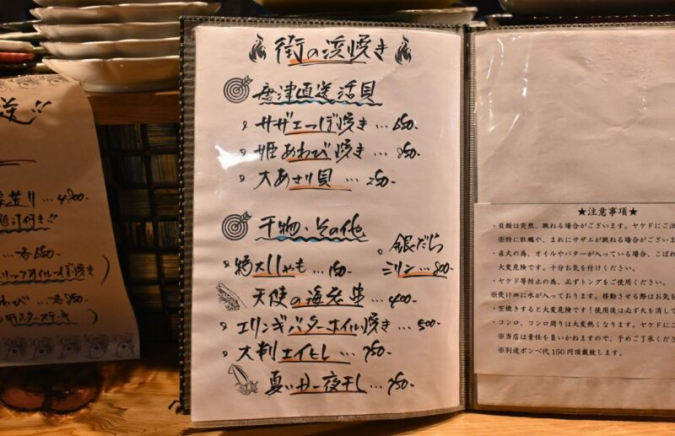 造り…4800-
街の浜焼き
唐津直送活貝
サザエつぼ焼き…650-
姫あわび焼き…850-
大あさり貝…250-
干物・その他
特大ししゃも…150-
銀だら
ミリン…800-
天使の海老串…400-
エリンギバターホイル焼き…500-
大判エイヒレ…750-
真いか一夜干し…750-
★注意事項★
・貝類は突然、跳ねる場合がございます。ヤケドにご注
※特に牡蠣や、まれにサザエが跳ねる場合がございま
・直火の為、オイルやバターが入っている場合、こぼれ
大変危険です。十分お気を付けください。
・ヤケド等防止の為、必ずトングをご使用ください。
※受け皿に水が入っております。移動させる際はお気を
・空焼きすると大変危険です！使用後は必ず火を消して
・コンロ、コンロ周りは大変熱くなります。ヤケドにご
※当店は責任を負いかねますので、予めご了承くださ
※別途ボンベ代150円頂戴致します。